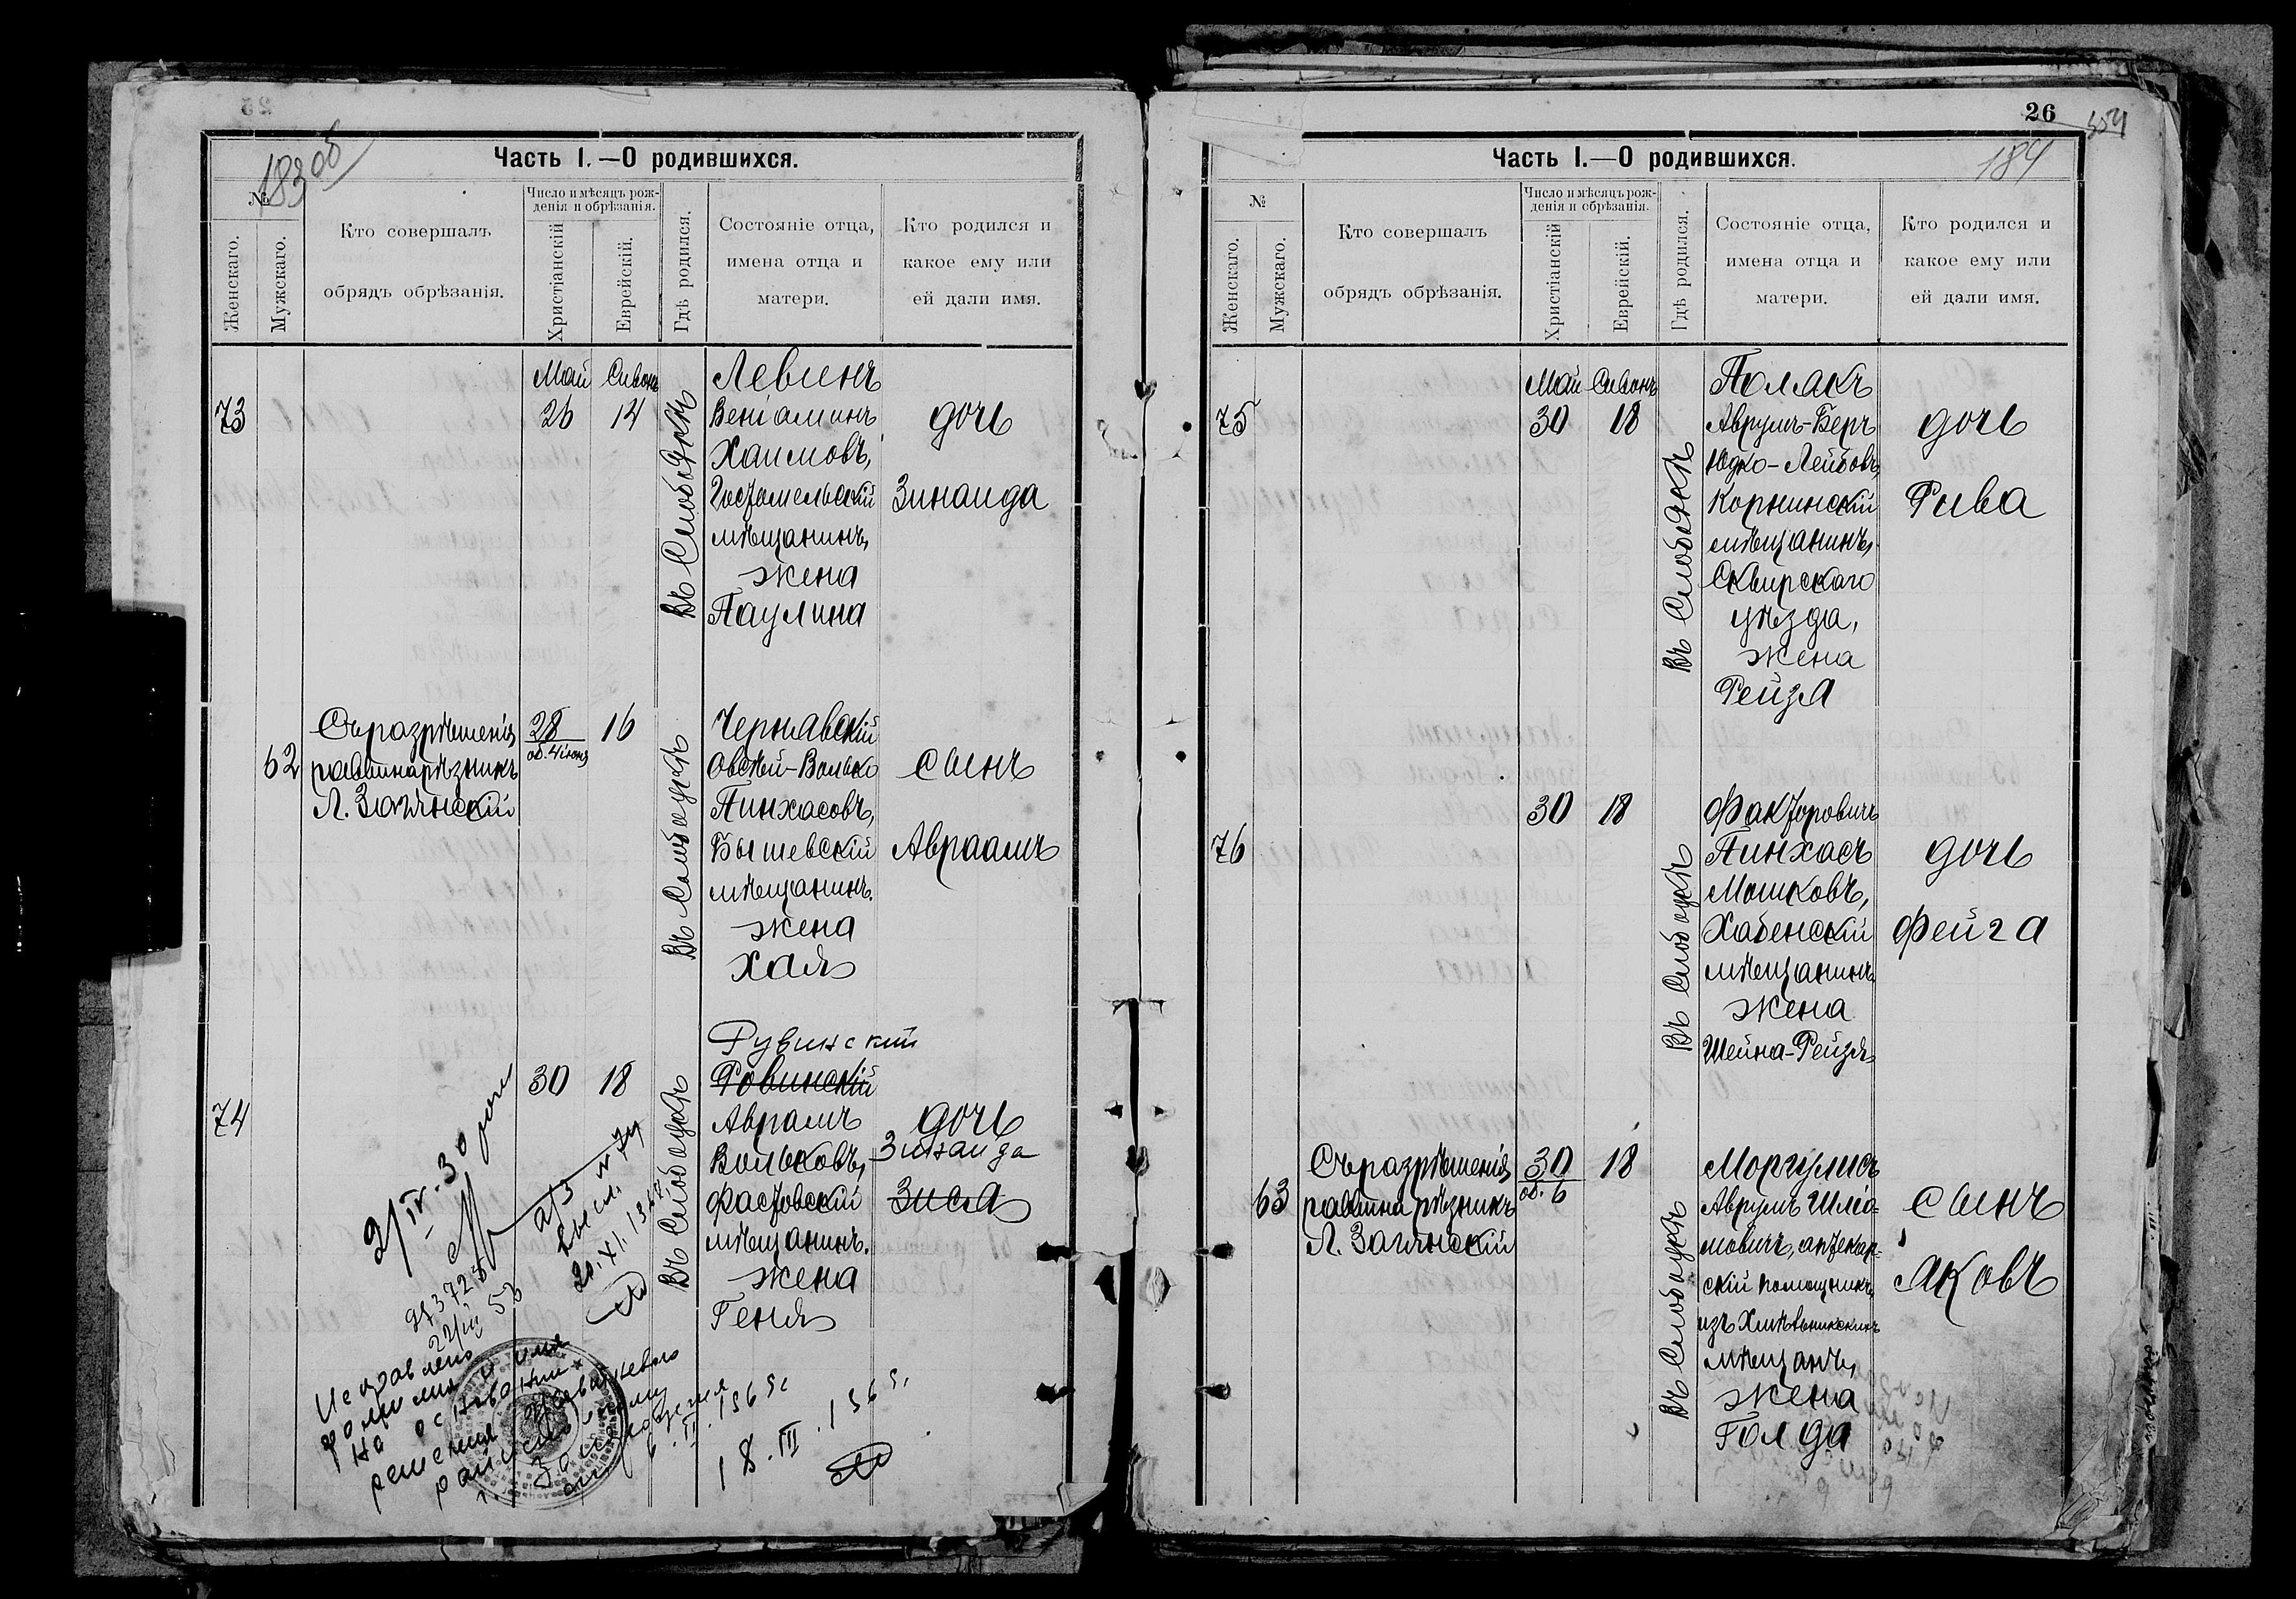 183 об
Часть I.—О родившихся.
№
Женскаго.
Мужскаго.
Кто совершалъ
обрядъ обрѣзанія.
Число и мѣсяцъ рож-
денія и обрѣзанія.
Христіанскій
Еврейскій.
Гдѣ родился.
Состояніе отца,
имена отца и
матери.
Кто родился и
какое ему или
ей дали имя.
73
Май Сивонъ
26 14
Въ Слободкѣ
Левинъ
Веніаминъ
Хаимовъ,
Гостомельскій
мѣщанинъ,
жена
Паулина
дочь
Зинаида
62
Съ разрѣшенія
раввина рѣзникъ
Л. Заглнскій
28 16
об. 4 іюня
Въ Слободкѣ
Чернявскій
Овсѣй-Волько
Пинхасовъ,
Бышевскій
мѣщанинъ.
жена
Хая
сынъ
Авраамъ
74
30 18
Въ Слободкѣ
Рувинский
Ровинскій
Аврамъ
Вольковъ,
Фастовскій
мѣщанинъ.
жена
Геня
дочь
Зинаида
Зися
2/IV-30
22/III 53
Исправлено
фамилия и имя
на основании
решения
18.III.1965г.
26
184
Часть I.—О родившихся.
№
Женскаго.
Мужскаго.
Кто совершалъ
обрядъ обрѣзанія.
Число и мѣсяцъ рож-
денія и обрѣзанія.
Христіанскій
Еврейскій.
Гдѣ родился.
Состояніе отца,
имена отца и
матери.
Кто родился и
какое ему или
ей дали имя.
75
Май Сивонъ
30 18
Въ Слободкѣ
Полякъ
Аврумъ-Беръ
Юдко-Лейбовъ,
Корнинскій
мѣщанинъ,
Сквирскаго
уѣзда,
жена
Рейзя
дочь
Рива
76
30 18
Въ Слободкѣ
Факторовичъ
Пинхасъ
Мошковъ,
Хабенскій
мѣщанинъ
жена
Шейна-Рейзя
дочь
Фейга
63
Съ разрѣшенія
раввина рѣзникъ
Л. Заглнскій
30 18
об. 6
Въ Слободкѣ
Моргулисъ
Аврумъ Шліо-
мовичъ, аптекар-
скій помощникъ,
изъ Хмѣльникскихъ
мѣщанъ,
жена
Голда
сынъ
Яковъ